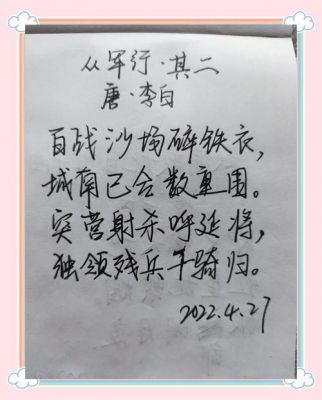 从军行·其二
唐·李白
百战沙场碎铁衣，
城南已合数重围。
突营射杀呼延将，
独领残兵千骑归。
2022.4.27